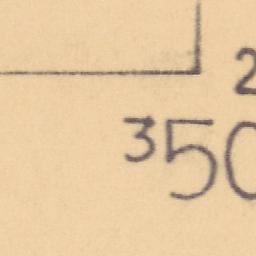 2
350